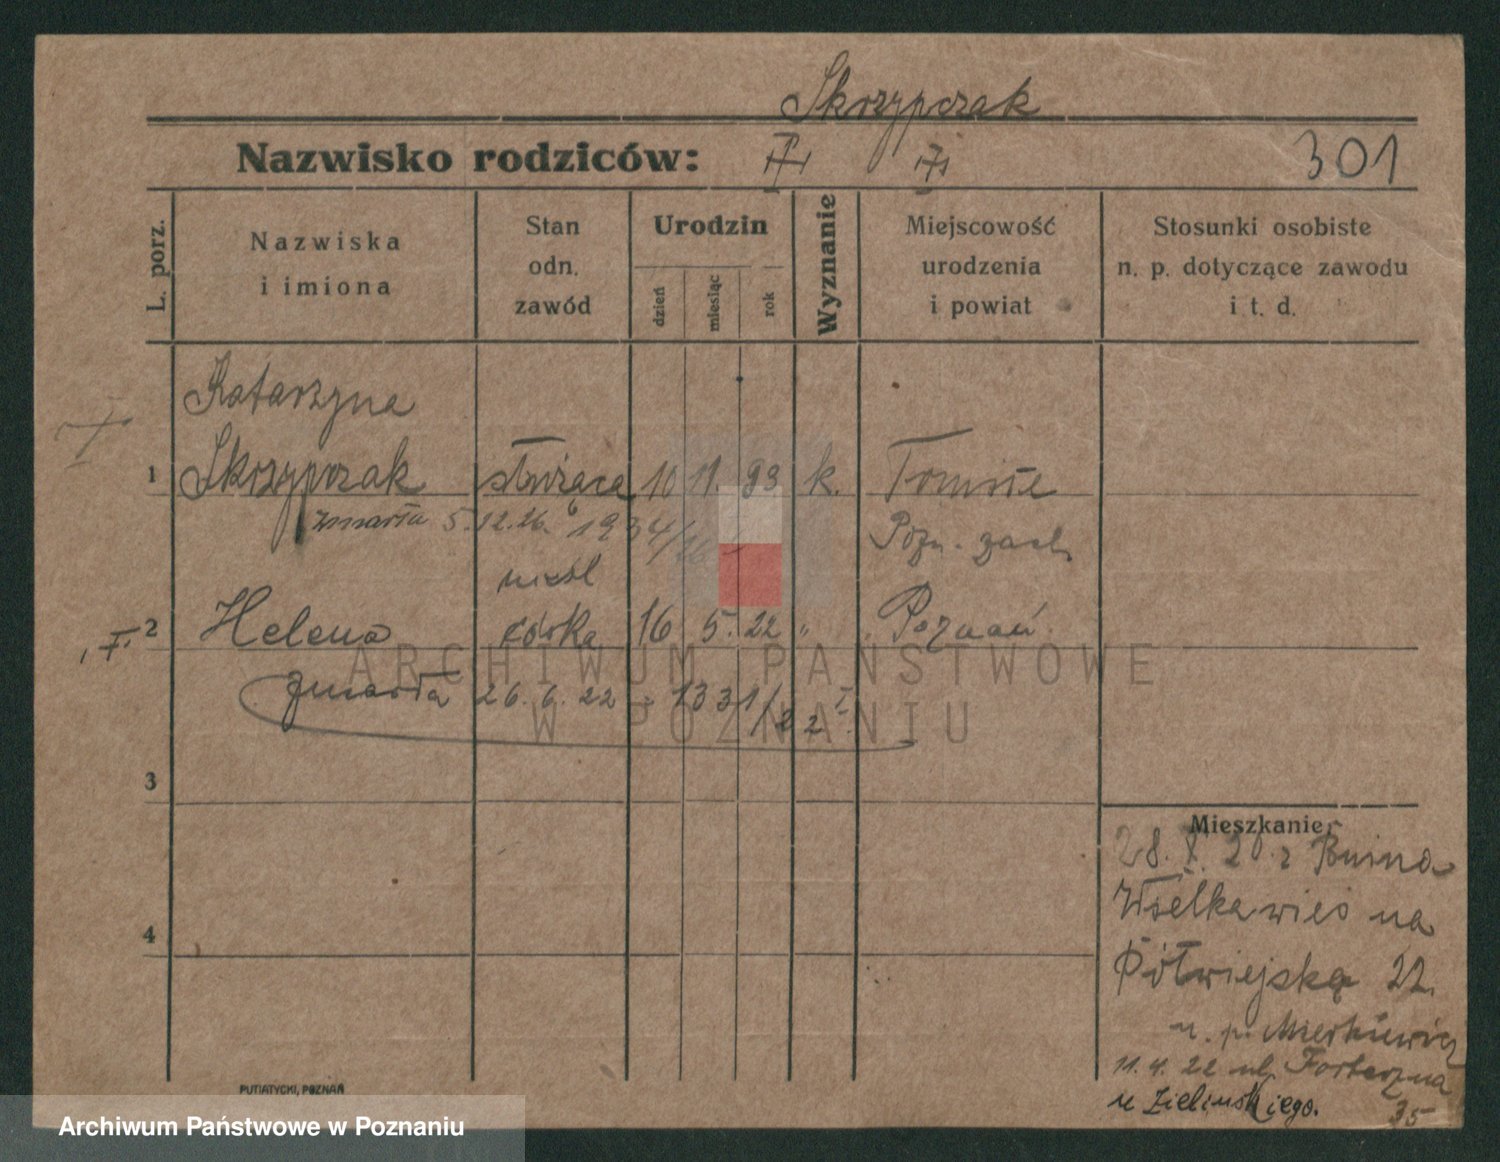 Skrzypczak
Nazwisko rodziców:
301
L. porz.
Nazwiska
i imiona
Stan
odn.
zawód
Urodzin
dzień
miesiąc
rok
Wyznanie
Miejscowość
urodzenia
i powiat
Stosunki osobiste
n. p. dotyczące zawodu
i t. d.
Katarzyna
1 Skrzypczak służąca 10 11. 93 k.
zmarła 5.12.26. 1934/26 Pozn. zach.
niezśl
2 Helena córka 16 5. 22 " Poznań
zmarła 26.6.22 - 1331/22
ARCHIWUM PAŃSTWOWE
W POZNANIU
3
4
Mieszkanie
28. X. 20 z Buina
Wielkawieś na
Półwiejską 22.
u. p.
11. 4. 22 ul. Forteczna
u Zielińskiego. 35
PUTIATYCKI, POZNAŃ
Archiwum Państwowe w Poznaniu